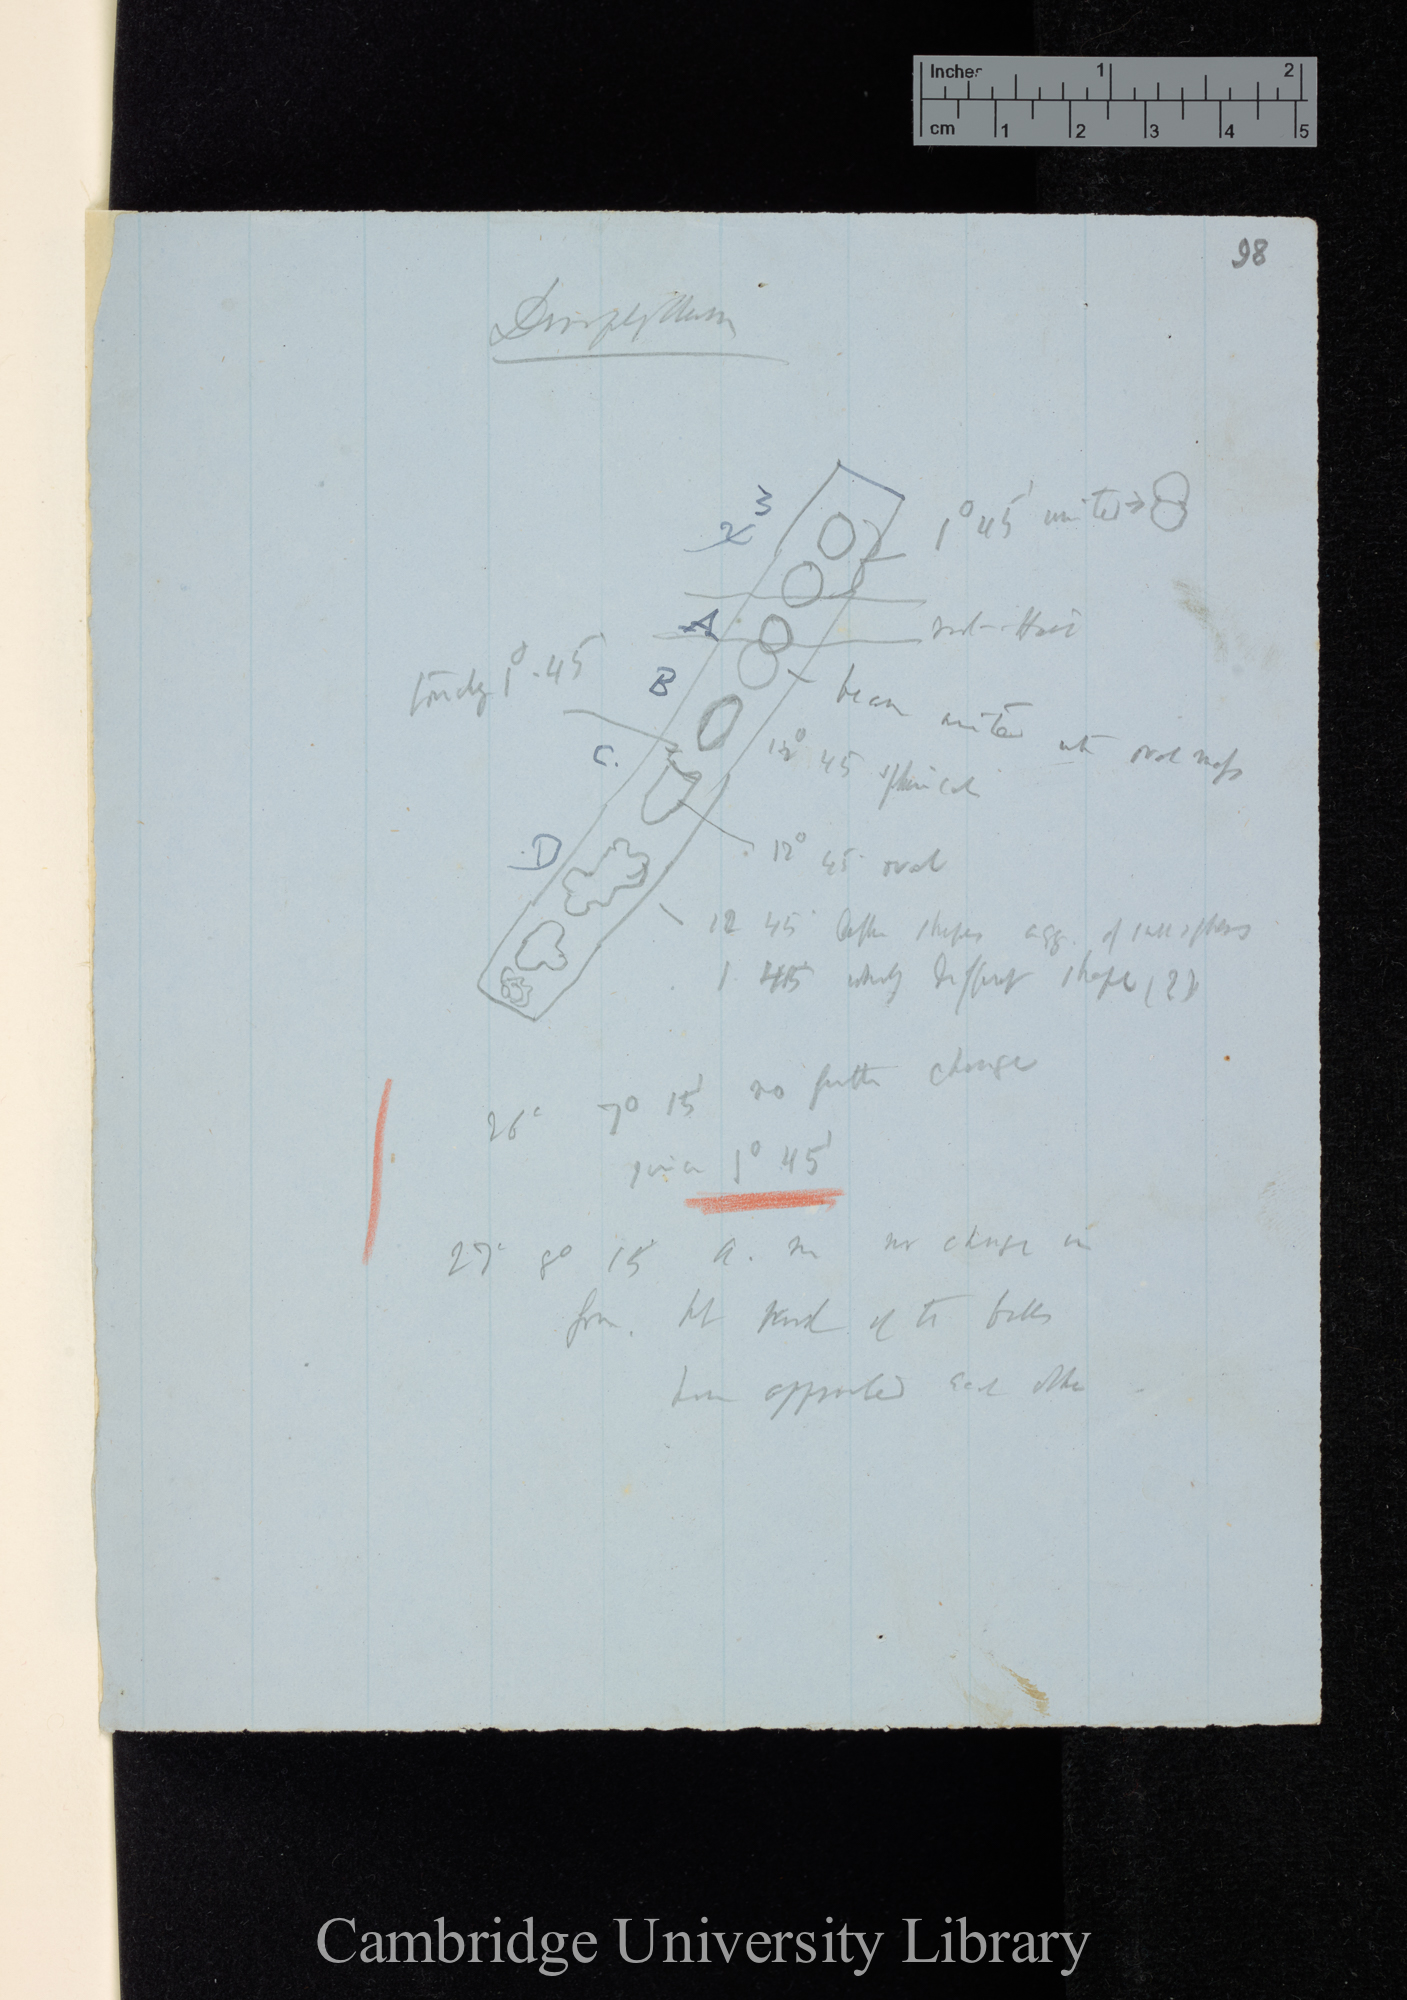 Inches 1 2
cm 1 2 3 4 5
98
Drosophyllum
3
1° 45' united →
A
touching 1° .45
B
became united into oval mass
C.
12° 45 spherical
D
12° 45 oval
12 45 shapes agg. of small spheres
1. 45 wholly different shape (2)
26° 7° 15' no further change
since 1° 45'
27° 8° 15' a. m no change in
form. but several of the balls
have approached each other
Cambridge University Library